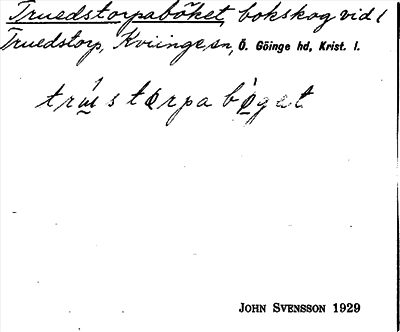 Truedstorpaböket, bokskog vid
Truedstorp, Kviinge sn, Ö. Göinge hd, Krist. l.
JOHN SVENSSON 1929